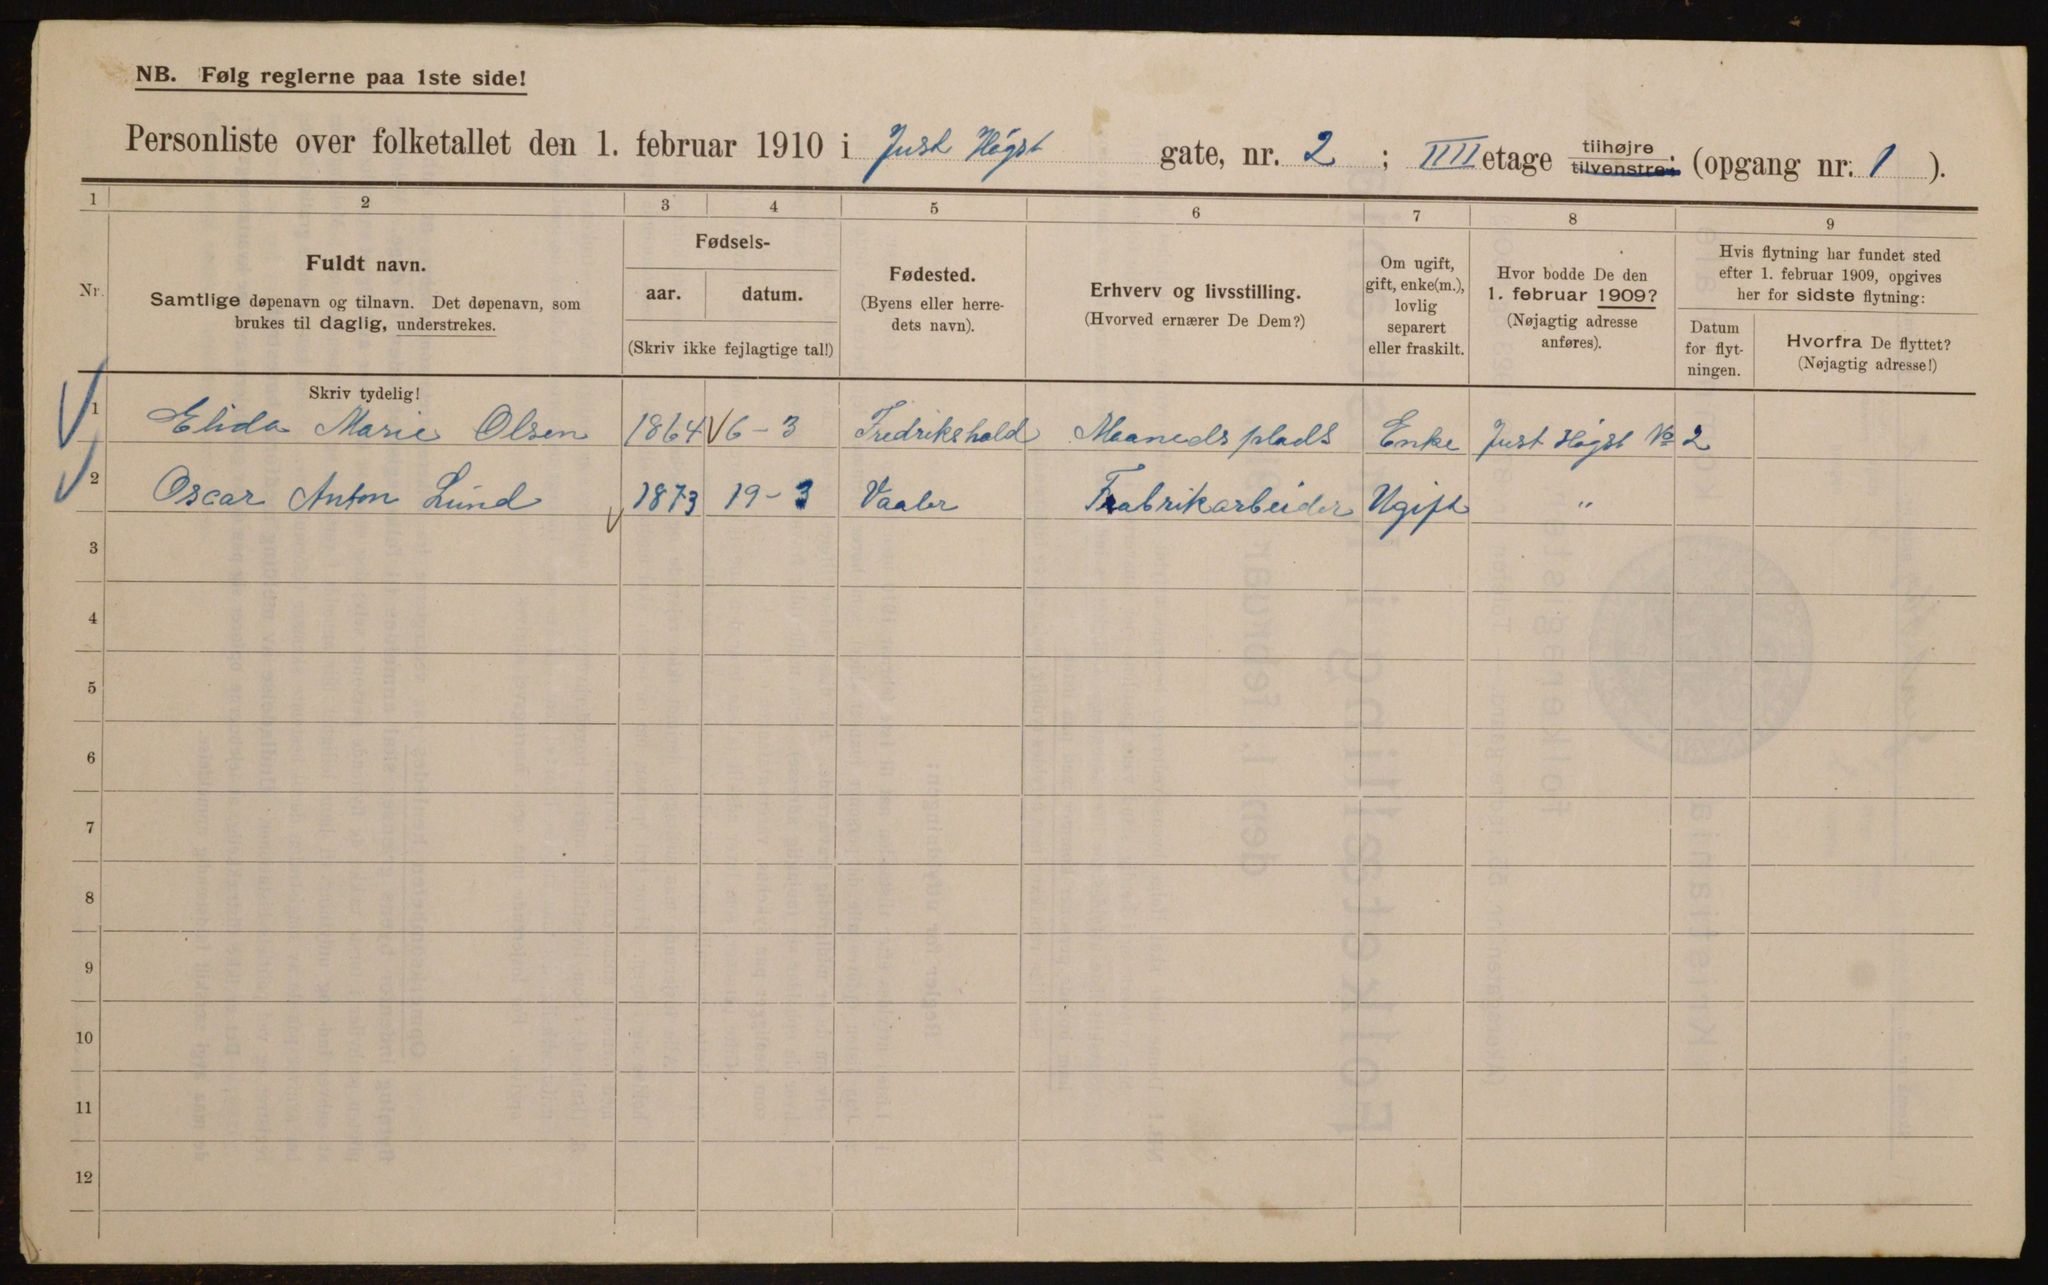 NB. Følg reglerne paa 1ste side!
Personliste over folketallet den 1. februar 1910 i Just Høgst gate, nr. 2 ; IIII etage tilhøjre tilvenstre; (opgang nr. 1 ).
1 2 3 4 5 6 7 8 9
Nr.
Fuldt navn.
Samtlige døpenavn og tilnavn. Det døpenavn, som
brukes til daglig, understrekes.
Fødsels-
aar. datum.
(Skriv ikke fejlagtige tal!)
Fødested.
(Byens eller herre-
dets navn).
Erhverv og livsstilling.
(Hvorved ernærer De Dem?)
Om ugift,
gift, enke(m.),
lovlig
separert
eller fraskilt.
Hvor bodde De den
1. februar 1909?
(Nøjagtig adresse
anføres).
Hvis flytning har fundet sted
efter 1. februar 1909, opgives
her for sidste flytning:
Datum
for flyt-
ningen.
Hvorfra De flyttet?
(Nøjagtig adresse!)
Skriv tydelig!
1 Elida Marie Olsen 1864 6-3 Fredrikshald Maanedsplads Enke Just Høgst No 2
2 Oscar Anton Lund 1873 19-3 Vaaler Fabrikarbeider Ugift "
3
4
5
6
7
8
9
10
11
12